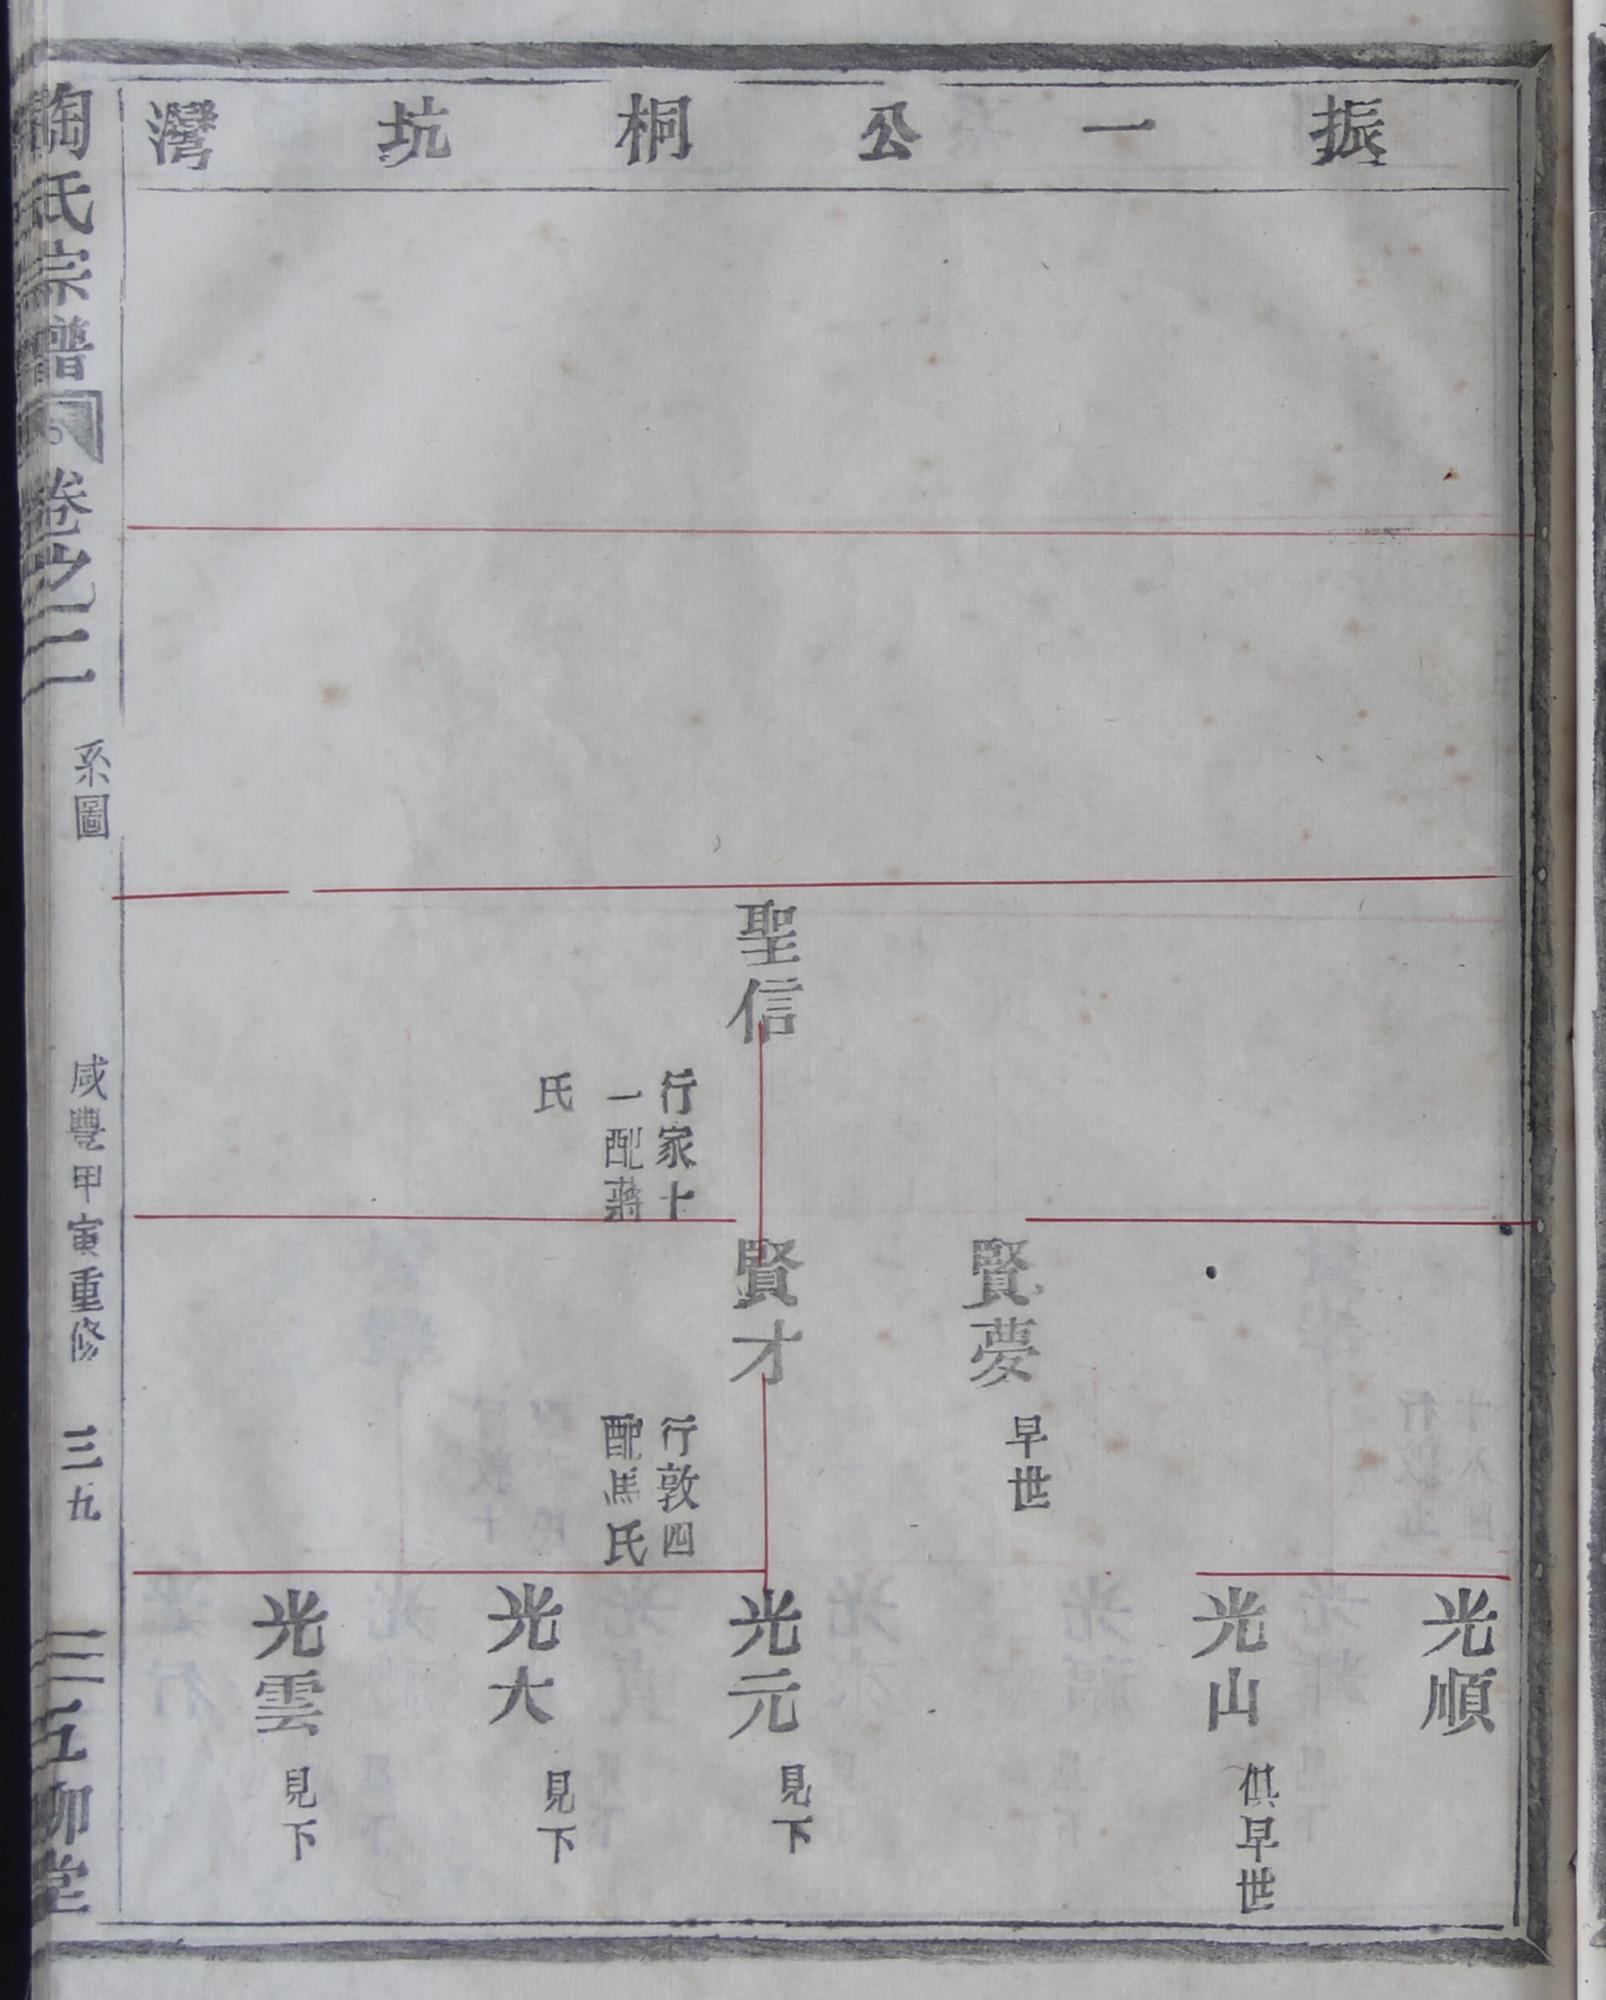 振一公桐坑灣
聖信
行家十
一配蔣
氏
賢夢
早世
賢才
行敦四
配馬氏
光順
光山
俱早世
光元
見下
光大
見下
光雲
見下
陶氏宗譜
卷之二
系圖
咸豐甲寅重修
三九
五柳堂